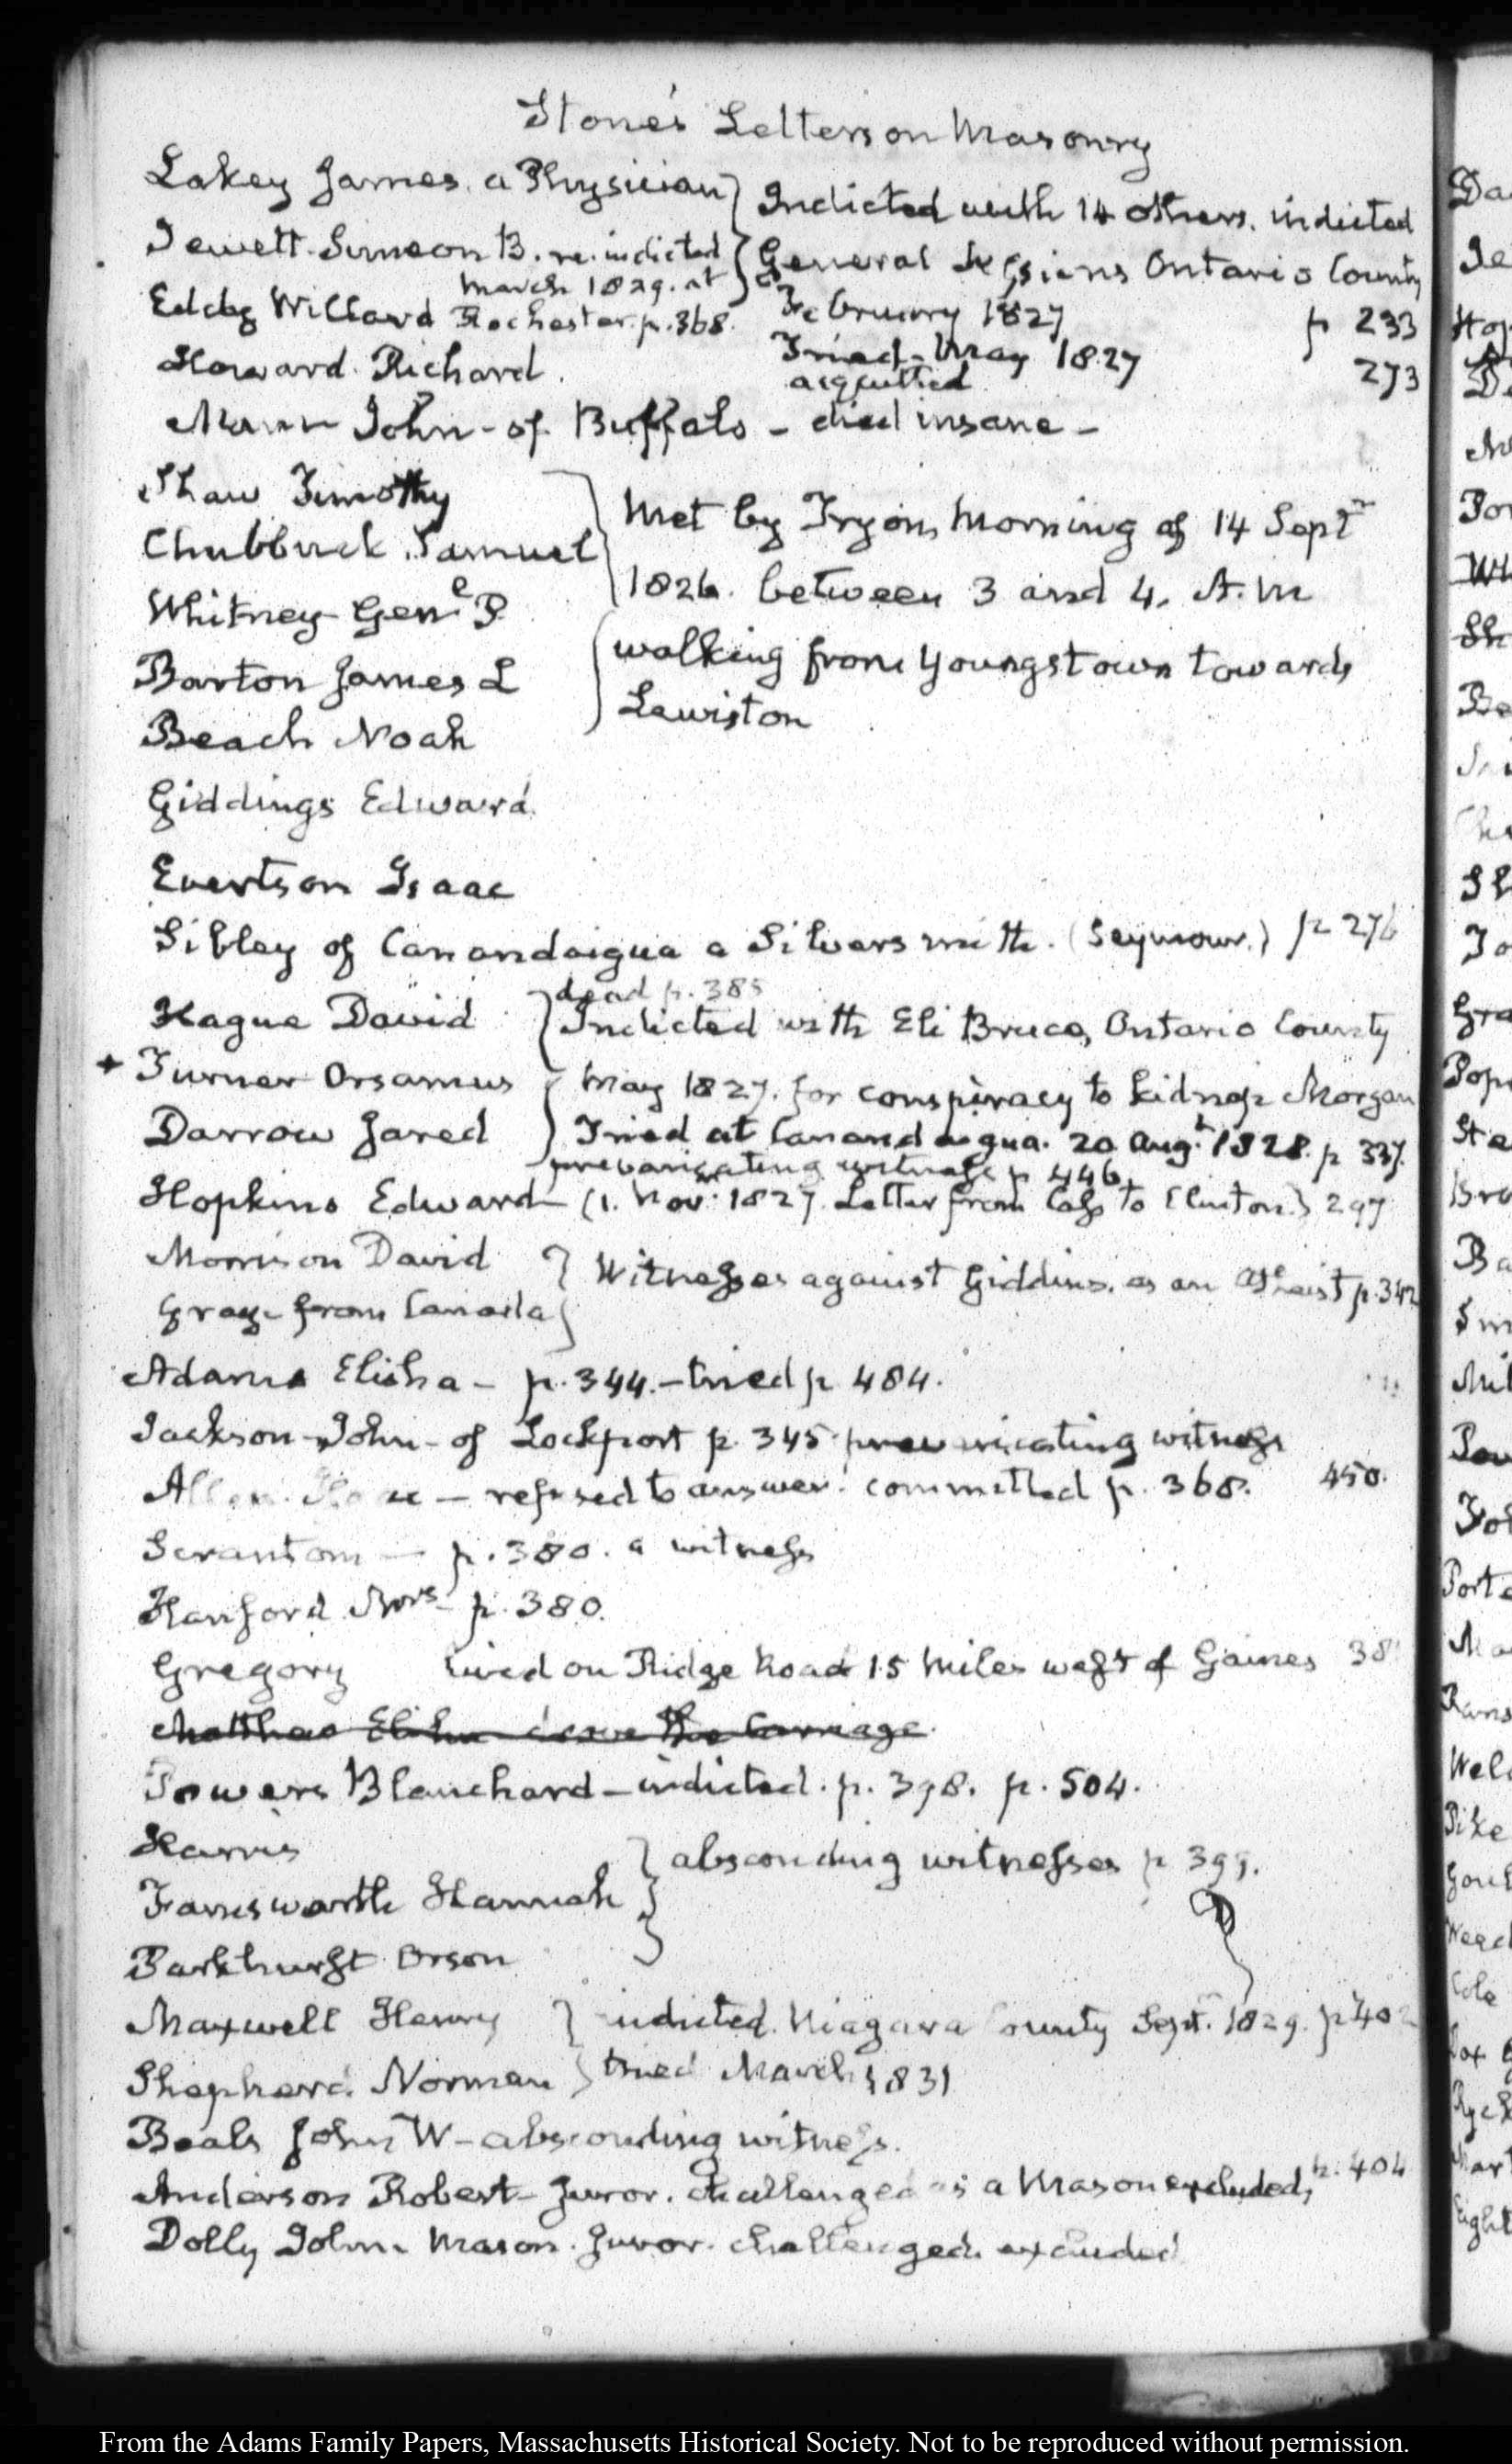 Stone's Letters on Masonry
Lakey James. a Physician } Indicted with 14 others. indicted
Jewett. Simeon B. re.indicted General Sessions Ontario County
March 1829. at
Eddy Willard Rochester. p. 368. February 1827 p 233
Howard. Richard. Tried. May 1827 273
acquitted
Mann John - of Buffalo - died insane -
Shaw Timothy
Chubbuck Samuel } Met by Tryon, morning of 14 Septr
Whitney Genl P 1826. between 3 and 4. A.M
Barton James L walking from Youngstown towards
Beach Noah Lewiston
Giddings Edward.
Evertson Isaac
Sibley of Canandaigua a Silversmith. (Seymour.) p 276
dead p. 385
Hague David } Indicted with Eli Bruce, Ontario County
+ Turner Orsamus May 1827. for conspiracy to kidnap Morgan
Darrow Jared Tried at Canandaigua. 20 Augt 1828. p 337.
prevaricating witness p 446.
Hopkins Edward - (1. Nov: 1827. Letter from Cass to Clinton.) 297
Morrison David } Witnesses against Giddins. as an Atheist p. 342
Gray from Canada
Adams Elisha - p. 344. - tried p 484.
Jackson John - of Lockport p. 345. prevaricating witness
Allen. Isaac - refused to answer. committed p. 368. 450.
Scrantom - p. 380. a witness
Hanford Mrs - p. 380.
Gregory lived on Ridge Road 15 Miles west of Gaines 38
Matthews Elihu drove the Carriage.
Powers Blanchard - indicted. p. 398. p. 504.
Harris } absconding witnesses p 399.
Farnsworth Hannah
Parkhurst Orson
Maxwell Henry } indicted. Niagara County Septr. 1829. p 402
Shepherd. Norman tried March 1831
Beals John W - absconding witness.
Anderson Robert - Juror. challenged as a Mason excluded, p. 404
Dolly John. Mason. Juror. challenged. excluded
Da
Je
Hop
Por
Sh
Be
Sh
Jo
Gra
Pope
Ste
Bro
Ba
Sm
Mil
Porte
Ma
Rans
Pike
Cole
Mart
Eight
From the Adams Family Papers, Massachusetts Historical Society. Not to be reproduced without permission.